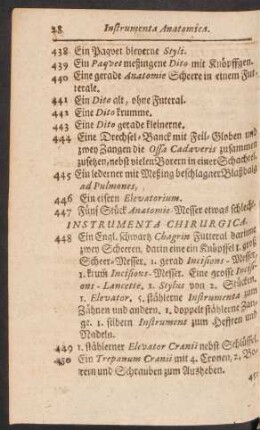 28 Instrumenta Anatomica.
438 Ein Paquet bleyerne Styli.
439 Ein Paqvet meßingene Dito mit Knöpffgen.
440 Eine gerade Anatomie Scheere in einem Fut-
terale.
441 Ein Dito alt, ohne Futeral.
442 Eine Dito krumme.
443 Eine Dito gerade kleinerne.
444 Eine Drechsel-Banck mit Feil-Globen und
zwey Zangen die Ossa Cadaveris zusammen
zusetzen, nebst vielen Borern in einer Schachtel.
445 Ein lederner mit Meßing beschlagner Blaßbalg
ad Pulmones,
446 Ein eisern Elevatorium.
447 Fünf Stück Anatomie-Messer etwas schlecht.
INSTRUMENTA CHIRURGICA.
448 Ein Engl. schwartz Chagrin Futteral darinne
zwey Scheeren, darin eine ein Knüpffel 1. groß
Scheer-Messer, 1. gerad Incisions-Messer,
1. krum̃ Incisions-Messer. Eine grosse Incisi-
ons-Lancette. 2 Stylus von 2. Stücken.
1. Elevator, 5. stählerne Instrumenta zum
Zähnen und andern, 1. doppelt stählerne Zan-
ge. 1. silbern Instrument zum Hefften und
Nadeln.
449 1. stählerner Elevator Cranii nebst Schlüssel.
450 Ein Trepanum Cranii mit 4. Cronen, 2. Bo-
rern und Schrauben zum Ausheben.
451